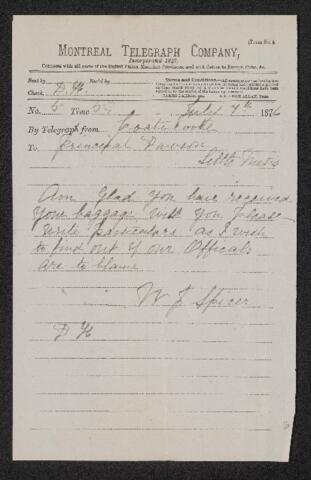 (Form No. 4
MONTREAL TELEGRAPH COMPANY,
Incorporated 1847.
Connects with all parts of the United States, Maritime Provinces, and with Cables to Europe, Cuba, &c.
Sent by
Rec'd by
Terms and Conditions.
Check D.H.
No. 5 Time July 7th 1876
By Telegraph from Coaticooke
To Principal Dawson
Little Metis
Am glad you have received
your baggage will you please
write particulars as I wish
to find out if our Officials
are to blame
W J Spicer
D H